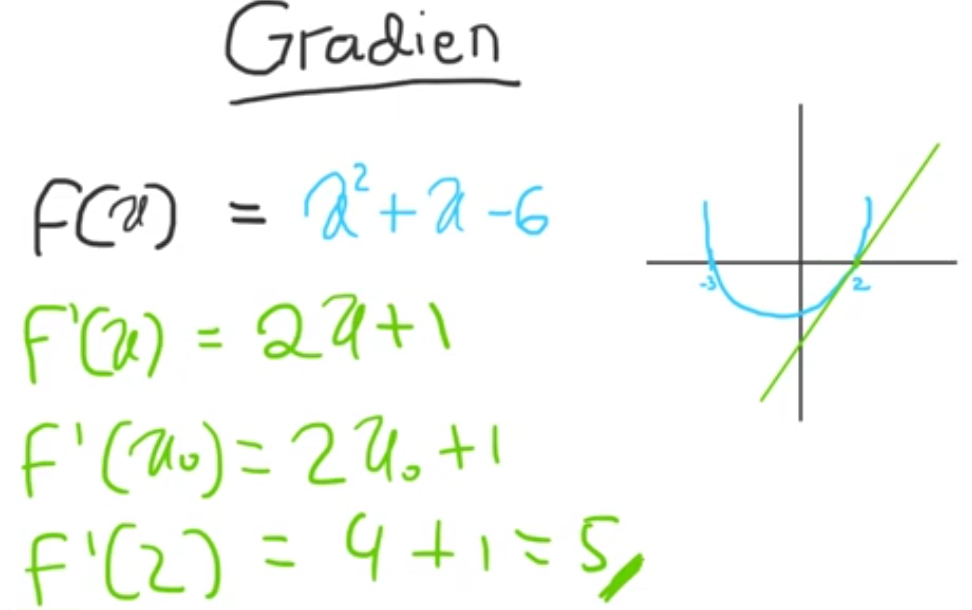 Gradien
F(x) = x² + x - 6
F'(x) = 2x + 1
-3 2
F'(x₀) = 2x₀ + 1
F'(2) = 4 + 1 = 5